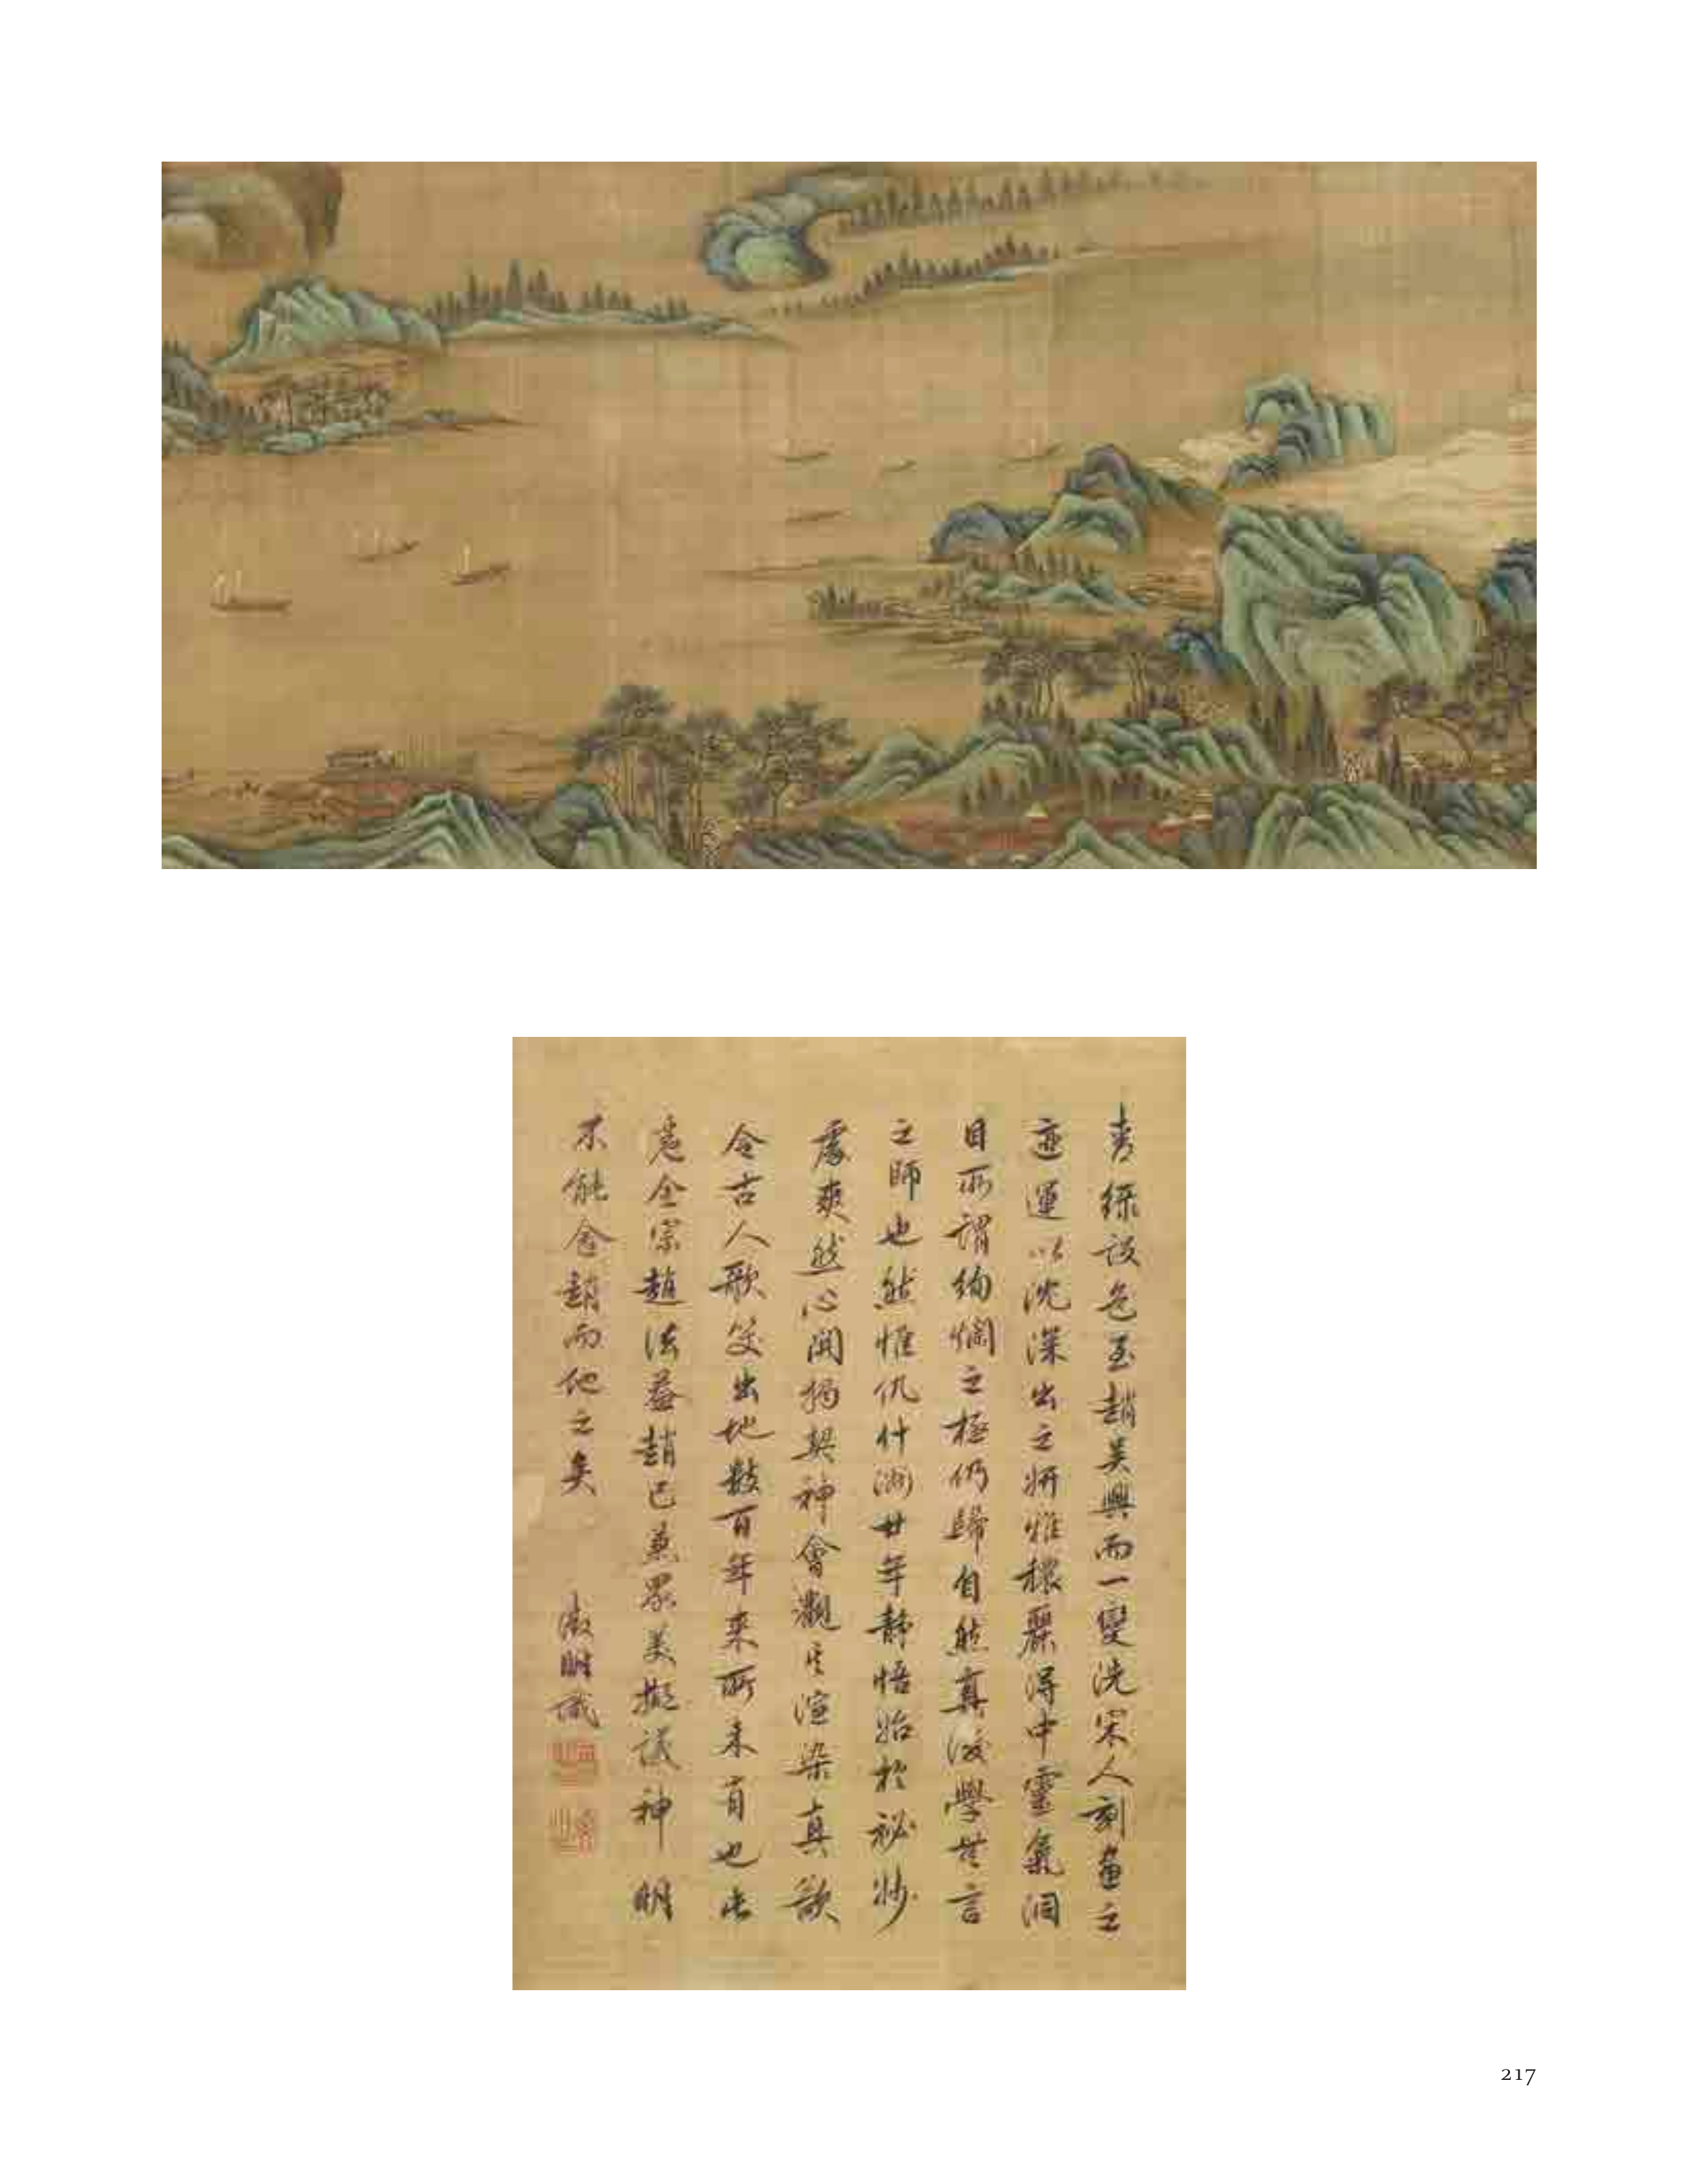 青綠設色至趙吳興而一變洗宋人刻畫之
迹運以沈深出之妍雅穠麗得中靈氣洞
目所謂絢爛之極仍歸自然真後學無言
之師也然惟仇什洲廿年靜悟始於祕妙
處爽然心開獨契神會觀其渲染真欲
令古人歌笑出地數百年來所未有也此
卷全宗趙法蓋趙已兼眾美擬議神明
不能舍趙而他之矣
徵明識
217